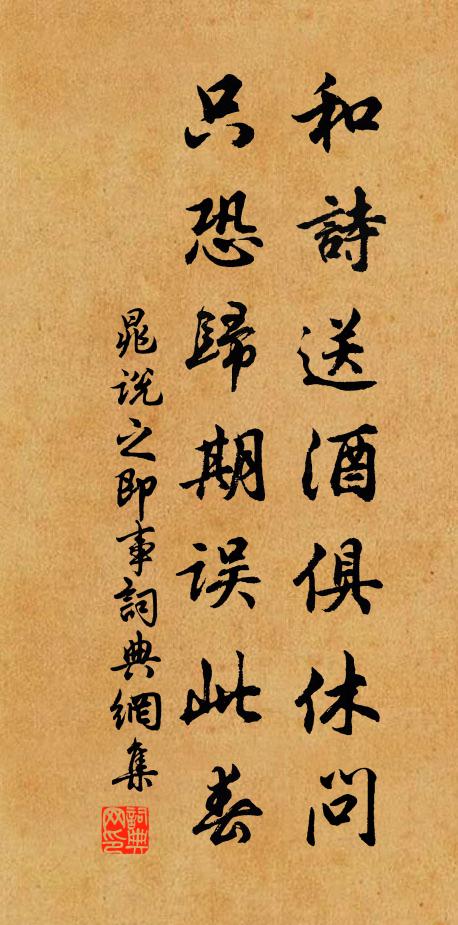 和詩送酒俱休問
只恐歸期误此春
晁說之即事詞典網集
詞典网印